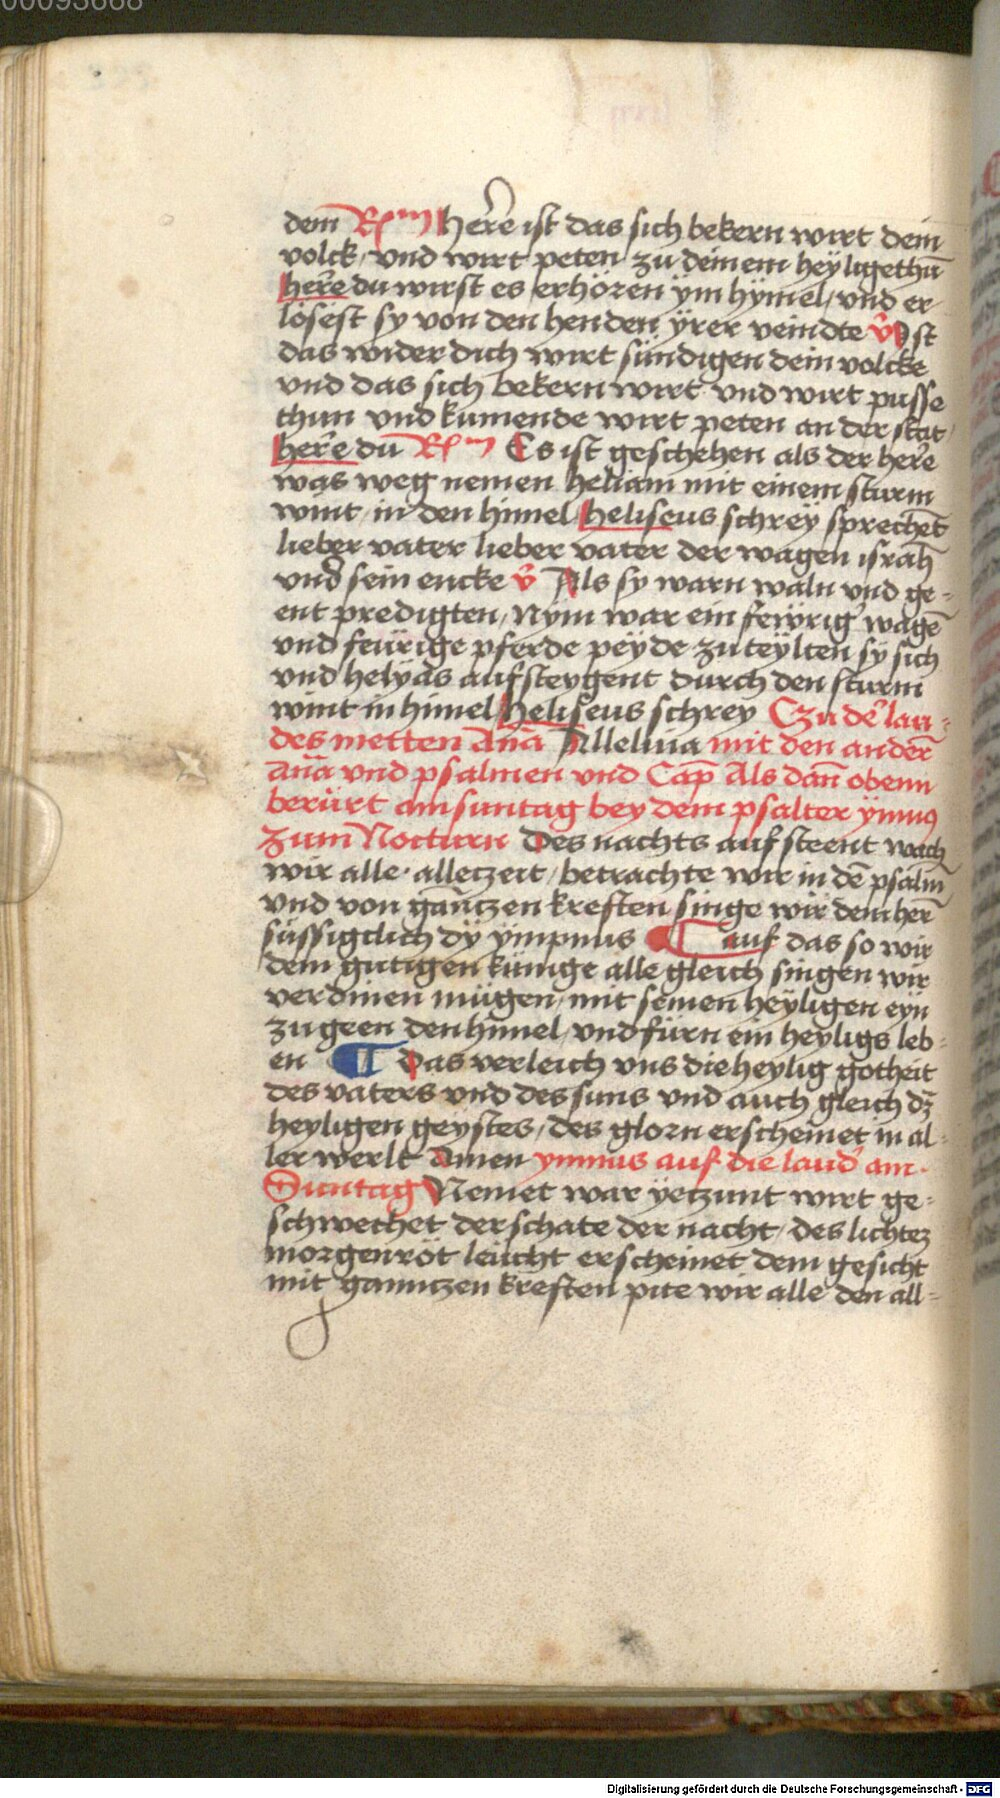 00093668
dem̄ Rm̄ here ist das sich bekern wirt dein
volck / vnd wirt peten zu deinem heyligethū
here du wirst es erhören ym hymel / vnd er-
lösest sy von den henden ÿrer veindte v̄ Ist
das wider dich wirt sündigen dein volcke
vnd das sich bekern wirt vnd wirt pusse
thun vnd kumende wirt peten an der stat /
here du Rm̄ Es ist geschehen als der here
was weg nemen heliam mit einem sturm
wint / in den himel heliseus schreÿ sprechēt
lieber vater lieber vater der wagen israh̄
vnd sein encke v̄ Als sy warn waln vnd ge-
ent predigten / Nym war ein fewrig wagē
vnd feürige pferde peÿde zu teÿlten sÿ sich
vnd helÿas aufsteygent durch den sturm
wint in himel heliseus schrey Czu der lau-
des metten Añā Alleluia mit den anderñ
Añā vnd psalmen vnd Cap̄ Als dañ obenn
berürt am suntag bey dem psalter ymnꝰ
zum Nocturn Des nachts auf steent wach
wir alle · alleczeit / betrachte wir in dē psalm̄
vnd von gañtzen kreften singe wir dem herñ
süssigclich dÿ ÿmpnus auf das so wir
dem gutigen künige alle gleich singen wir
verdinen mügen / mit seinen heÿligen eyn
zu geen den himel / vnd fürn ein heyligs leb-
en Das verleich vns die heylig gotheit
des vaters vnd des suns vnd auch gleich dꝫ
heyligen geystes / des glorn erscheinet in al-
ler werlt Amen ymnus auf die laud am
Suntag Nemet war yetzunt wirt ge-
schwechet der schate der nacht / des lichtez
morgenröt leücht erscheinet dem gesicht
mit gannczen kreften pite wir alle den all-
Digitalisierung gefördert durch die Deutsche Forschungsgemeinschaft - DFG